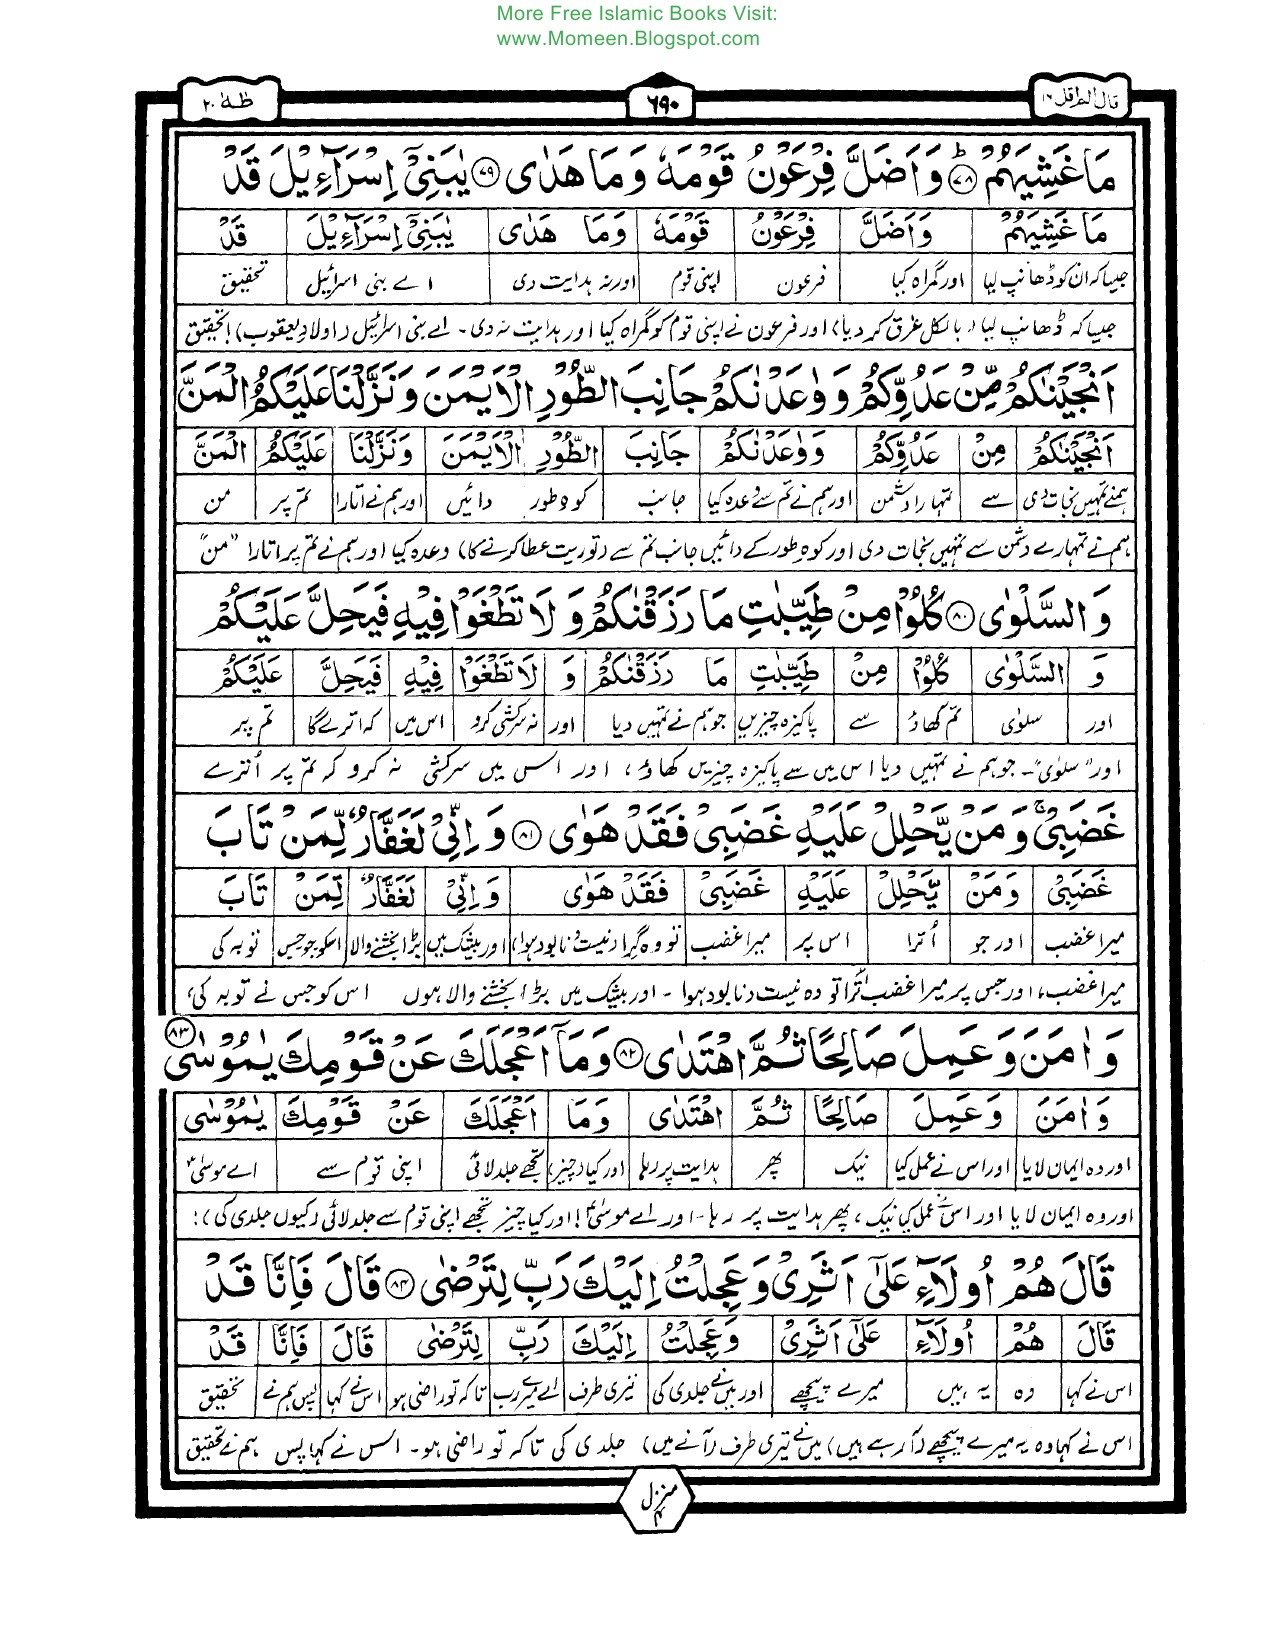 More Free Islamic Books Visit:
www.Momeen.Blogspot.com
قال الم اقل ١٦
٦٩٠
طٰهٰ ٢٠
مَا غَشِيَهُمْ ؕ ﴿٧٨﴾ وَ اَضَلَّ فِرْعَوْنُ قَوْمَهٗ وَ مَا هَدٰى ﴿٧٩﴾ يٰبَنِيْۤ اِسْرَآءِيْلَ قَدْ
مَا غَشِيَهُمْ وَ اَضَلَّ فِرْعَوْنُ قَوْمَهٗ وَمَا هَدٰى يٰبَنِيْۤ اِسْرَآءِيْلَ قَدْ
جیسا کہ ان کو ڈھانپ لیا اور گمراہ کیا فرعون اپنی قوم اور نہ ہدایت دی اے بنی اسرائیل تحقیق
جیسا کہ ڈھانپ لیا (بالکل غرق کر دیا) اور فرعون نے اپنی قوم کو گمراہ کیا اور ہدایت نہ دی۔ اے بنی اسرائیل (اولادِ یعقوب)! تحقیق
اَنْجَيْنٰكُمْ مِّنْ عَدُوِّكُمْ وَ وٰعَدْنٰكُمْ جَانِبَ الطُّوْرِ الْاَيْمَنَ وَ نَزَّلْنَا عَلَيْكُمُ الْمَنَّ
اَنْجَيْنٰكُمْ مِنْ عَدُوِّكُمْ وَوٰعَدْنٰكُمْ جَانِبَ الطُّوْرِ الْاَيْمَنَ وَنَزَّلْنَا عَلَيْكُمُ الْمَنَّ
ہمنے تمہیں نجات دی سے تمہارا دشمن اور ہم نے تم سے وعدہ کیا جانب کوہ طور دائیں اور ہم نے اتارا تم پر من
ہم نے تمہارے دشمن سے تمہیں نجات دی اور کوہِ طور کے دائیں جانب تم سے (توریت عطا کرنے کا) وعدہ کیا اور ہم نے تم پر اتارا "من"
وَ السَّلْوٰى ﴿٨٠﴾ كُلُوْا مِنْ طَيِّبٰتِ مَا رَزَقْنٰكُمْ وَ لَا تَطْغَوْا فِيْهِ فَيَحِلَّ عَلَيْكُمْ
وَ السَّلْوٰى كُلُوْا مِنْ طَيِّبٰتِ مَا رَزَقْنٰكُمْ وَ لَا تَطْغَوْا فِيْهِ فَيَحِلَّ عَلَيْكُمْ
اور سلوٰی تم کھاؤ سے پاکیزہ چیزیں جو ہم نے تمہیں دیا اور نہ سرکشی کرو اس میں کہ اترے گا تم پر
اور "سلوٰی"۔ جو ہم نے تمہیں دیا اس میں سے پاکیزہ چیزیں کھاؤ، اور اس میں سرکشی نہ کرو کہ تم پر اُترے
غَضَبِيْ ۚ وَ مَنْ يَّحْلِلْ عَلَيْهِ غَضَبِيْ فَقَدْ هَوٰى ﴿٨١﴾ وَ اِنِّيْ لَغَفَّارٌ لِّمَنْ تَابَ
غَضَبِيْ وَ مَنْ يَّحْلِلْ عَلَيْهِ غَضَبِيْ فَقَدْ هَوٰى وَ اِنِّيْ لَغَفَّارٌ لِّمَنْ تَابَ
میرا غضب اور جو اُترا اس پر میرا غضب تو وہ گرا (نیست و نابود ہوا) اور بیشک میں بڑا بخشنے والا اسکو جو جس توبہ کی
میرا غضب، اور جس پر میرا غضب اُترا تو وہ نیست و نابود ہوا۔ اور بیشک میں بڑا بخشنے والا ہوں اس کو جس نے توبہ کی،
وَ اٰمَنَ وَ عَمِلَ صَالِحًا ثُمَّ اهْتَدٰى ﴿٨٢﴾ وَ مَاۤ اَعْجَلَكَ عَنْ قَوْمِكَ يٰمُوْسٰى ﴿٨٣﴾
وَ اٰمَنَ وَ عَمِلَ صَالِحًا ثُمَّ اهْتَدٰى وَمَا اَعْجَلَكَ عَنْ قَوْمِكَ يٰمُوْسٰى
اور وہ ایمان لایا اور اس نے عمل کیا نیک پھر ہدایت پر رہا اور کیا (چیز) تجھے جلد لائی اپنی قوم سے اے موسیٰؑ
اور وہ ایمان لایا اور اس نے عمل کیا نیک، پھر ہدایت پر رہا۔ اور اے موسیٰؑ! اور کیا چیز تجھے اپنی قوم سے جلد لائی (کیوں جلدی کی)؛
قَالَ هُمْ اُولَآءِ عَلٰۤى اَثَرِيْ وَ عَجِلْتُ اِلَيْكَ رَبِّ لِتَرْضٰى ﴿٨٤﴾ قَالَ فَاِنَّا قَدْ
قَالَ هُمْ اُولَآءِ عَلٰۤى اَثَرِيْ وَعَجِلْتُ اِلَيْكَ رَبِّ لِتَرْضٰى قَالَ فَاِنَّا قَدْ
اس نے کہا وہ یہ ہیں میرے پیچھے اور میں نے جلدی کی تیری طرف اے میرے رب تاکہ تو راضی ہو اس نے کہا پس ہم نے تحقیق
اس نے کہا وہ یہ میرے پیچھے (آ رہے ہیں) میں نے تیری طرف (آنے میں) جلدی کی تاکہ تو راضی ہو۔ اس نے کہا پس ہم نے تحقیق
منزل ٤